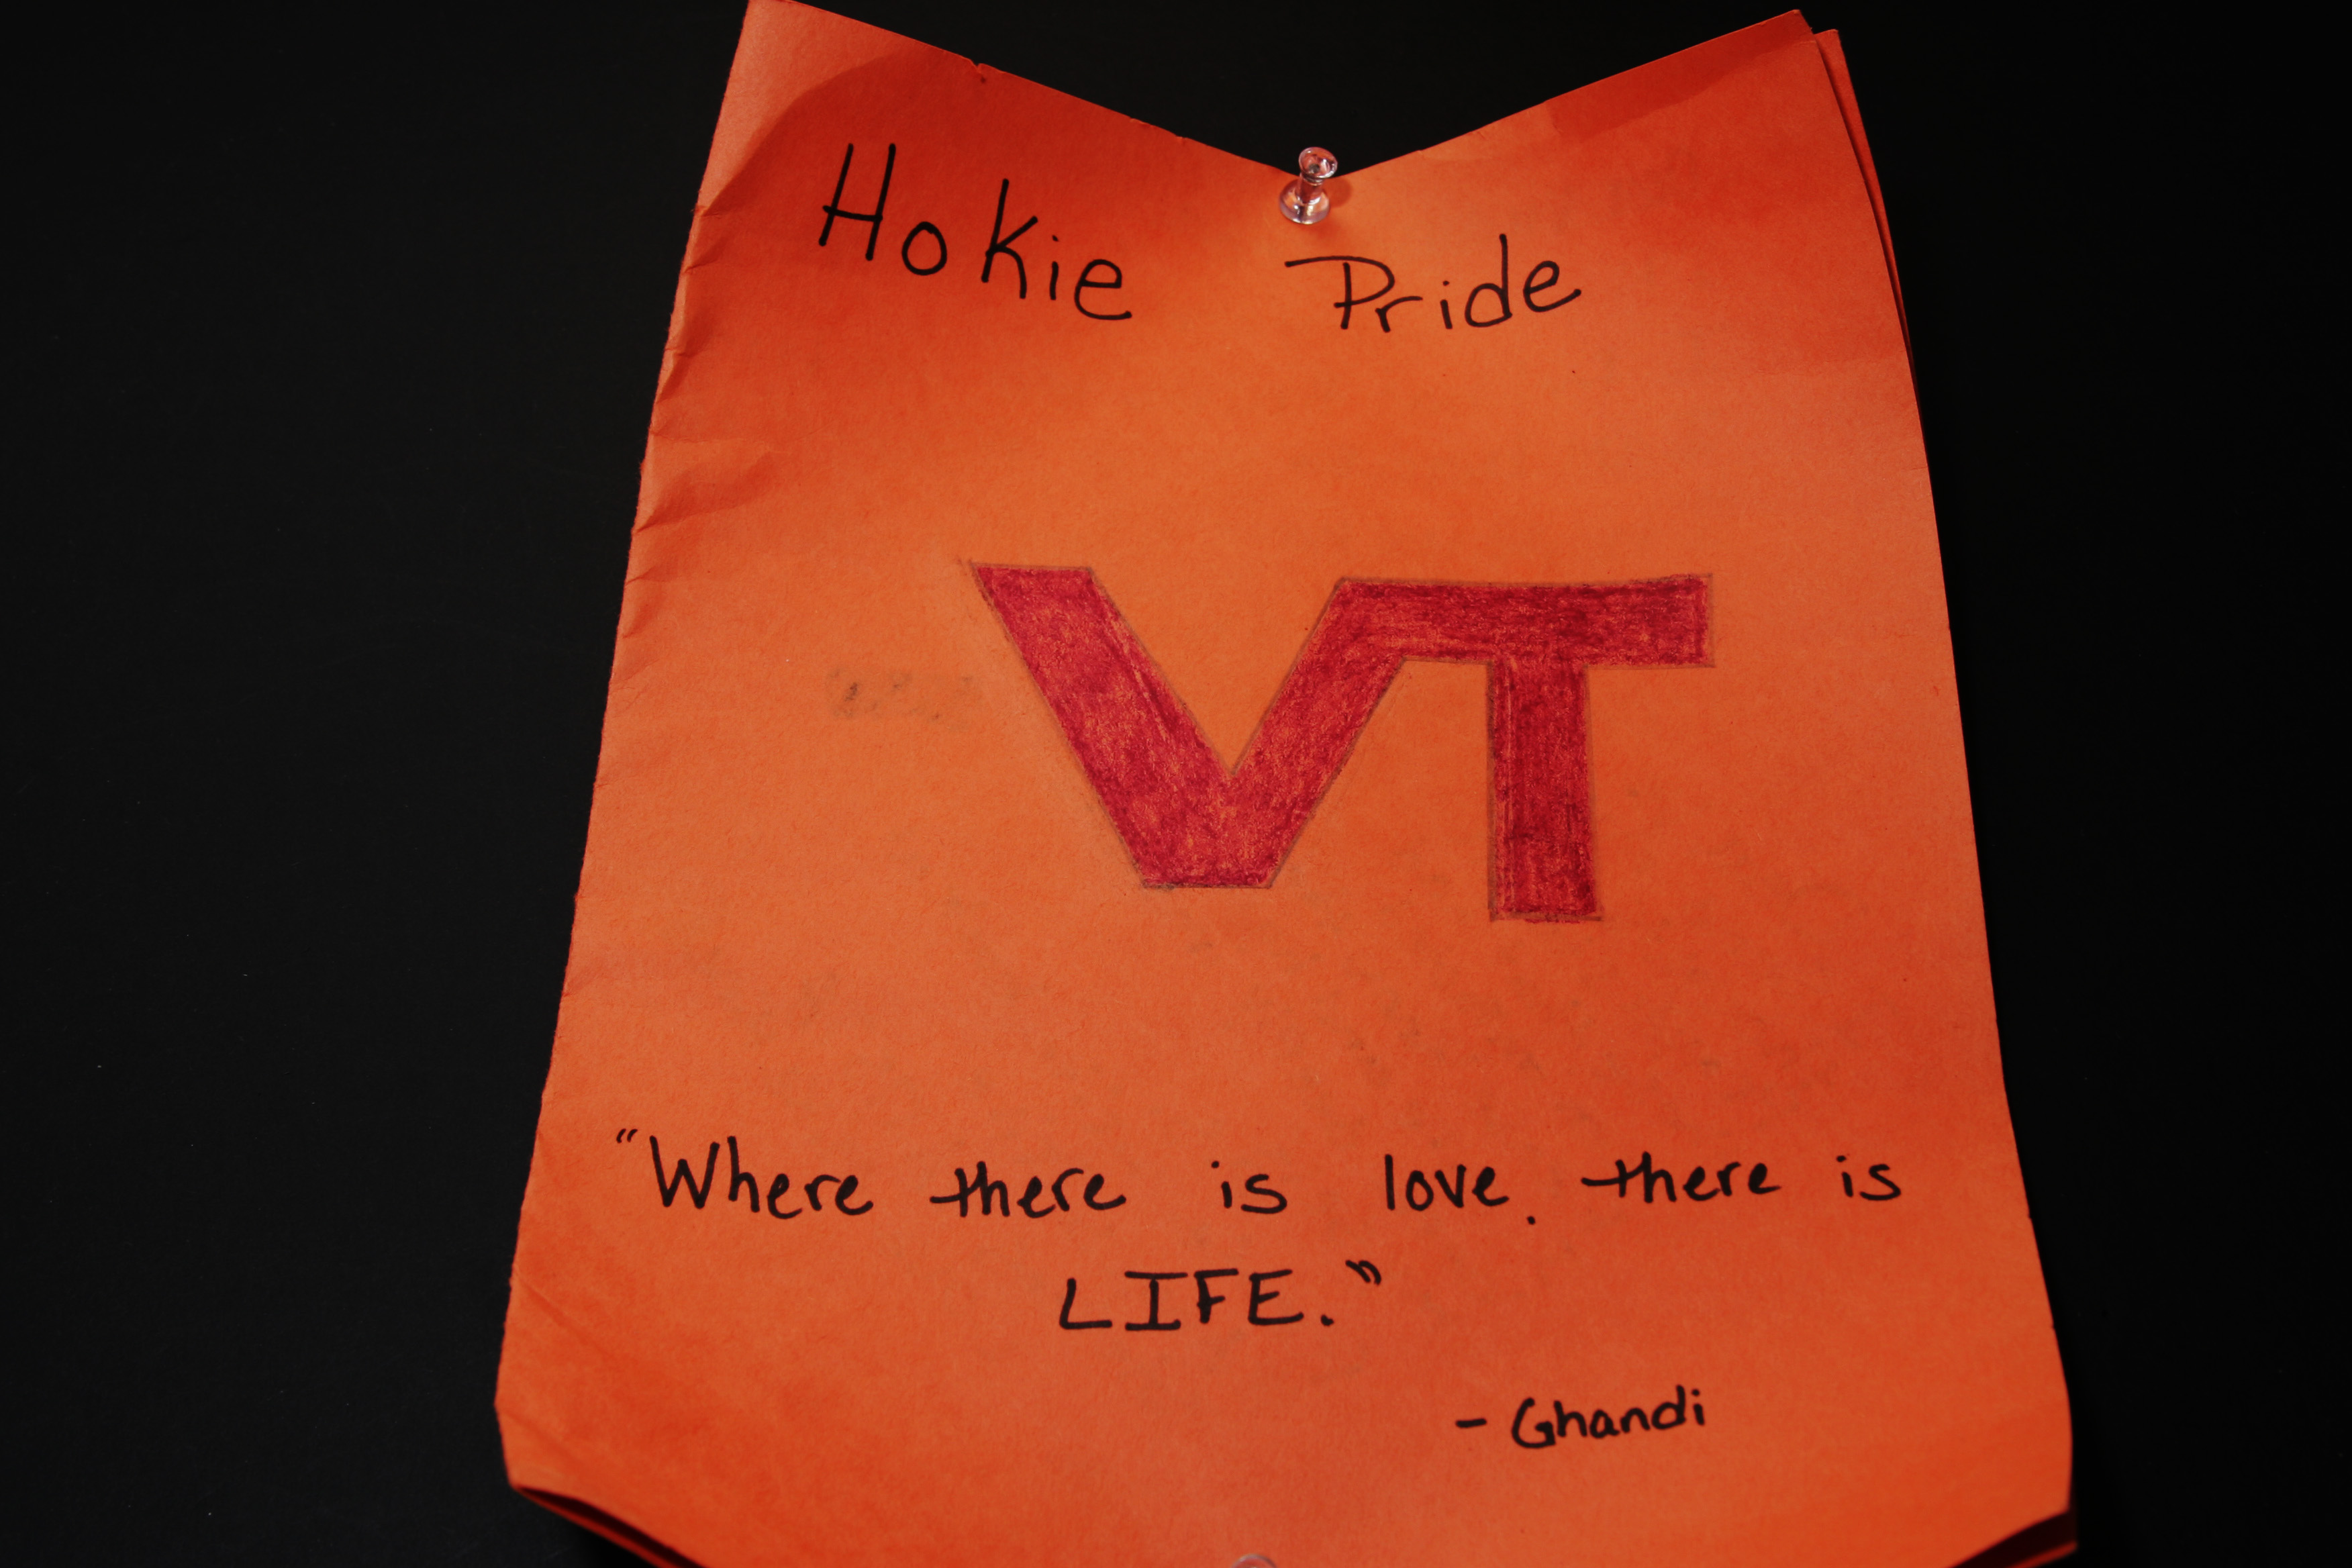 Hokie Pride
VT
“Where there is love. there is
LIFE.”
- Ghandi